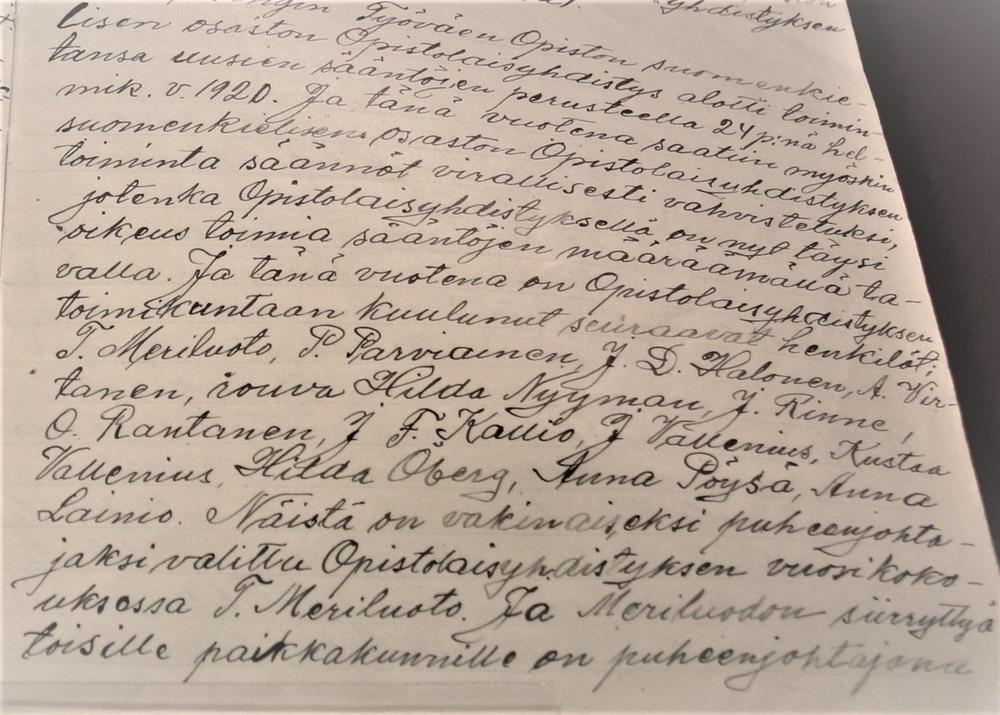 yhdistyksen
Työväen Opiston suomenkie-
lisen osaston Opistolaisyhdistys aloitti toimin-
tansa uusien sääntöjen perusteella 24 p:nä hel-
mik. v. 1920. Ja tänä vuotena saatiin myöskin
suomenkielisen osaston Opistolaisyhdistyksen
toiminta säännöt virallisesti vahvistetuksi,
jotenka Opistolaisyhdistyksellä on nyt täysi
oikeus toimia sääntöjen määräämällä ta-
valla. Ja tänä vuotena on Opistolaisyhdistyksen
toimikuntaan kuulunut seuraavat henkilöt;
T. Meriluoto, P. Parviainen, J. D. Halonen, A. Vir-
tanen, rouva Hilda Nyyman, J. Rinne,
O. Rantanen, J F. Kallio, J Vallenius, Kustaa
Vallenius, Hilda Öberg, Anna Pöysä, Anna
Lainio. Näistä on vakinaiseksi puheenjohta-
jaksi valittu Opistolaisyhdistyksen vuosikoko-
uksessa T. Meriluoto. Ja Meriluodon siirryttyä
toisille paikkakunnille on puheenjohtajana